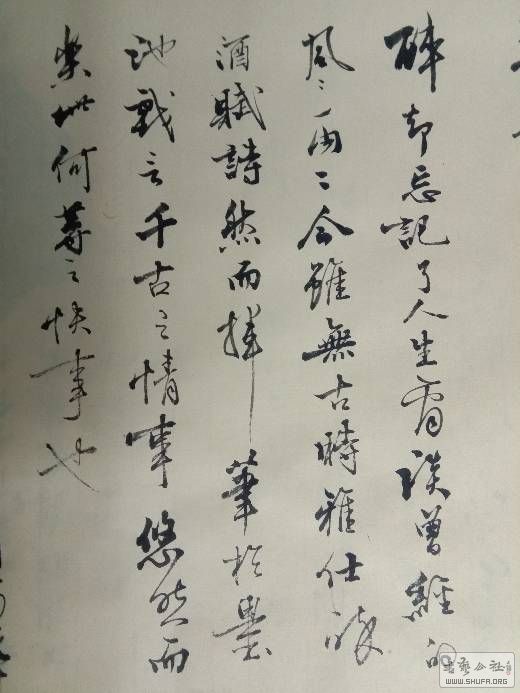 醉却忘記了人生談曾經的
風〻雨〻今雖無古時雅仕
酒賦詩然而揮筆於墨
池戲言千古之情事悠然而
樂此何等之快事也
书艺公社
WWW.SHUFA.ORG